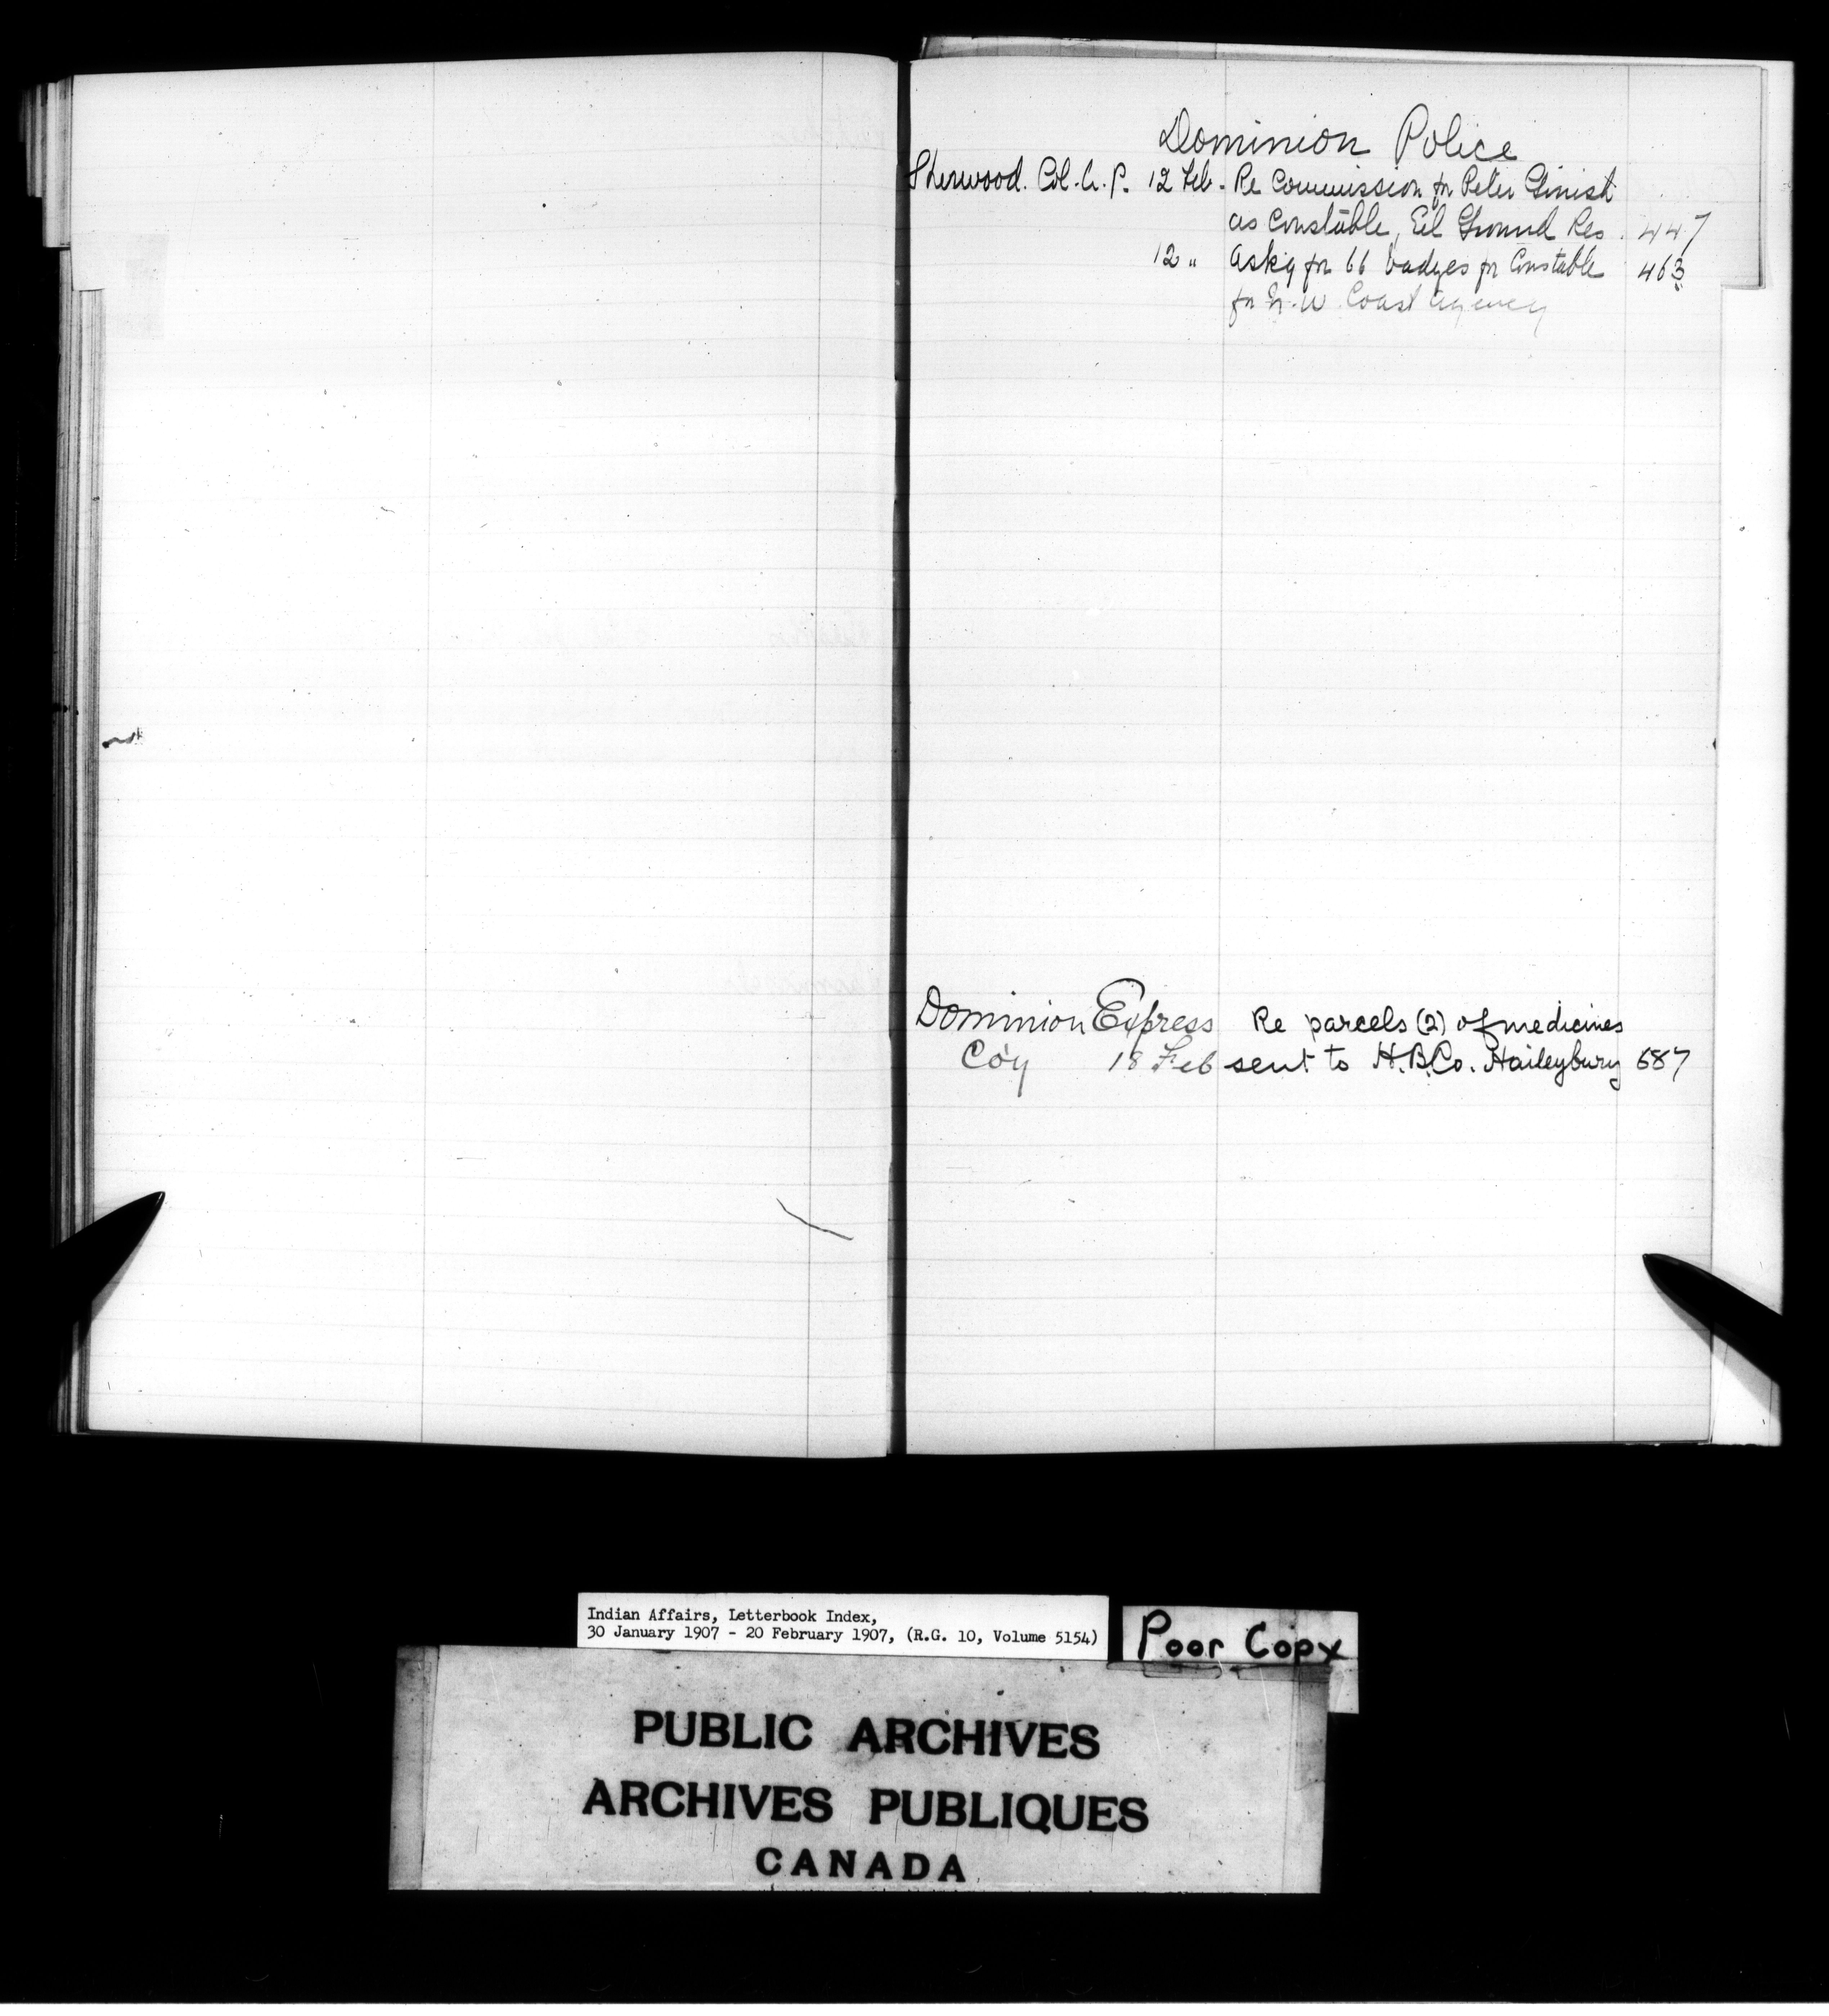 Dominion Police
Sherwood. Col. A. P. 12 Feb. Re Commission for Peter Ginish
as Constable, Eel Ground Res. 447
12 " Askg for 66 badges for Constable 463
for N.W. Coast Agency
Dominion Express Re parcels (2) of medicines
Co'y 18 Feb sent to H.B.Co. Haileybury 687
Indian Affairs, Letterbook Index,
30 January 1907 - 20 February 1907, (R.G. 10, Volume 5154)
Poor Copy
PUBLIC ARCHIVES
ARCHIVES PUBLIQUES
CANADA